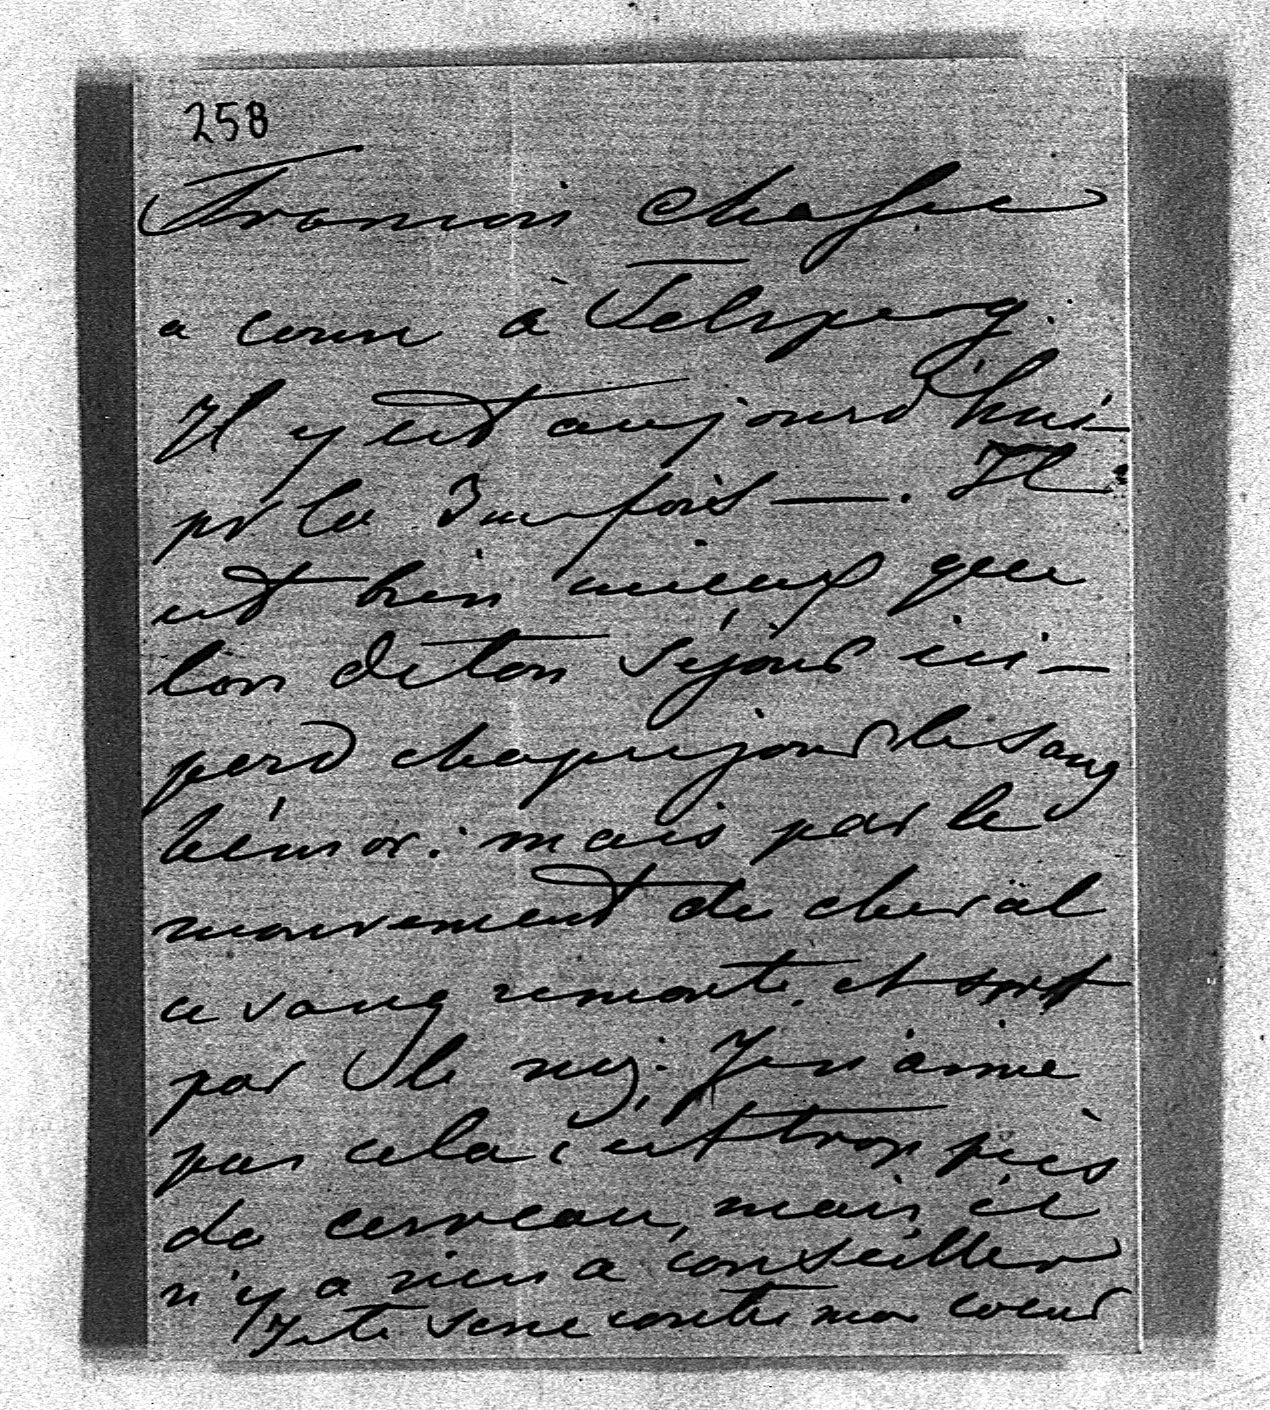 258
François chasse
a couru à
Il y est aujourd'hui
pr la 3me fois —. Il
est bien mieux que
lors de ton séjour ici —
perd chaque jour le sang
hémor. mais par le
mouvement du cheval
ce sang remonte et sort
par le nez. Je n'aime
pas cela, c'est trop près
du cerveau, mais il
n'y a rien a conseiller
Je te serre contre mon coeur